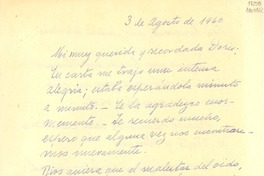 3 de agosto de 1960
Mi muy querida y recordada Doris:
Tu carta me trajo una intensa
alegría; estaba esperándola minuto
a minuto. - Te la agradezco enor-
memente. - Te recuerdo mucho,
espero que alguna vez nos encontrare-
mos nuevamente.
Dios quiera que el malestar del oído,